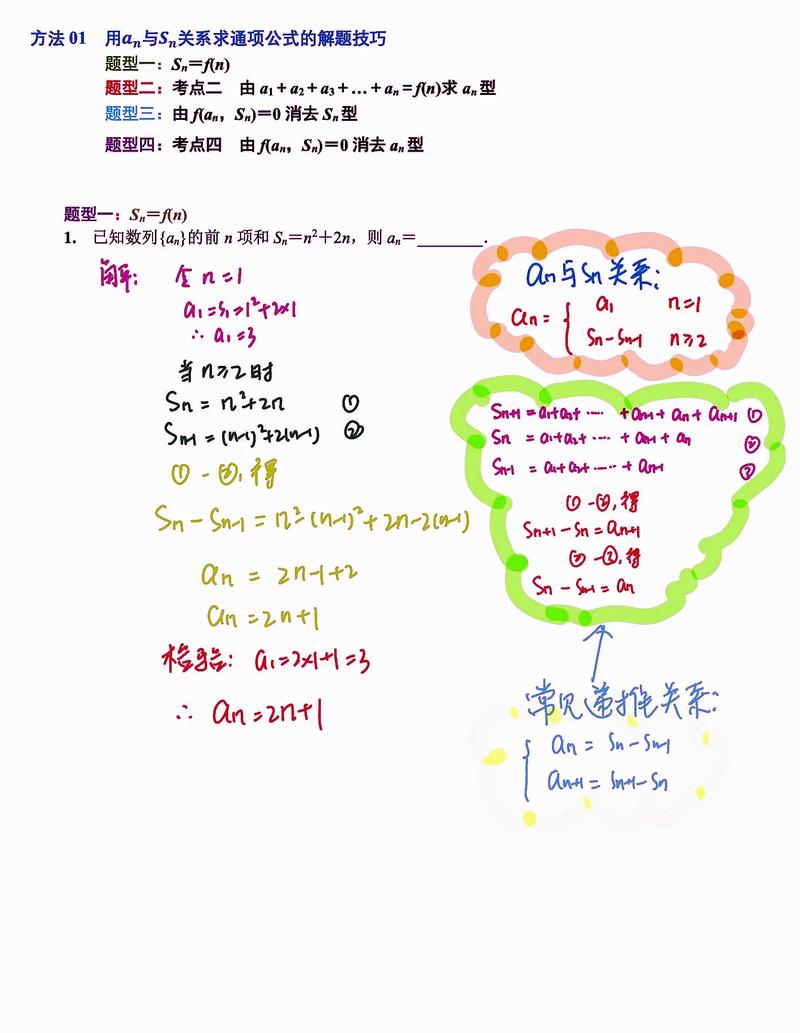 方法 01 用aₙ与Sₙ关系求通项公式的解题技巧
题型一：Sₙ＝f(n)
题型二：考点二 由 a₁＋a₂＋a₃＋…＋aₙ＝f(n)求 aₙ型
题型三：由 f(aₙ，Sₙ)＝0 消去 Sₙ型
题型四：考点四 由 f(aₙ，Sₙ)＝0 消去 aₙ型
题型一：Sₙ＝f(n)
1. 已知数列{aₙ}的前 n 项和 Sₙ＝n²＋2n，则 aₙ＝________.
解： 令 n=1
a₁=S₁=1²+2×1
∴ a₁=3
当 n≥2 时
Sₙ = n²+2n ①
Sₙ₋₁ = (n-1)²+2(n-1) ②
① - ②, 得
Sₙ - Sₙ₋₁ = n²-(n-1)²+2n-2(n-1)
aₙ = 2n-1+2
aₙ = 2n+1
检验： a₁=2×1+1=3
∴ aₙ=2n+1
aₙ与Sₙ关系：
aₙ = { a₁ n=1
Sₙ-Sₙ₋₁ n≥2
Sₙ₊₁ = a₁+a₂+ ⋯⋯ +aₙ₋₁+ aₙ + aₙ₊₁ ①
Sₙ = a₁+a₂+ ⋯⋯ + aₙ₋₁ + aₙ ②
Sₙ₋₁ = a₁+a₂+ ⋯⋯ + aₙ₋₁ ③
① - ②, 得
Sₙ₊₁ - Sₙ = aₙ₊₁
② - ③, 得
Sₙ - Sₙ₋₁ = aₙ
常见递推关系：
{ aₙ = Sₙ-Sₙ₋₁
aₙ₊₁ = Sₙ₊₁-Sₙ